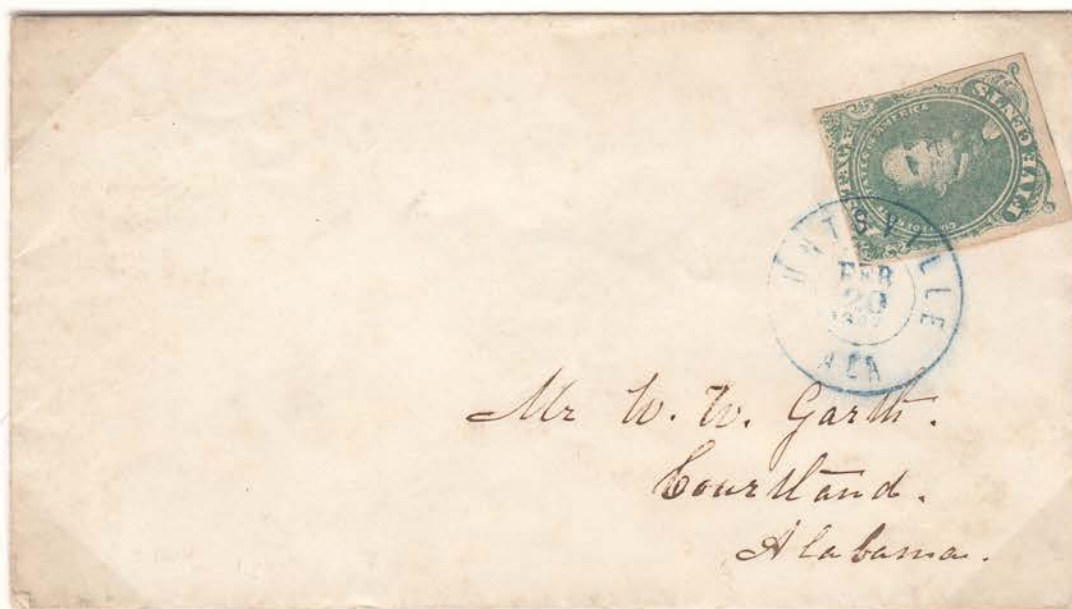 FIVE CENTS
HUNTSVILLE
FEB
20
ALA
Mr W. W. Garth.
Courtland.
Alabama.